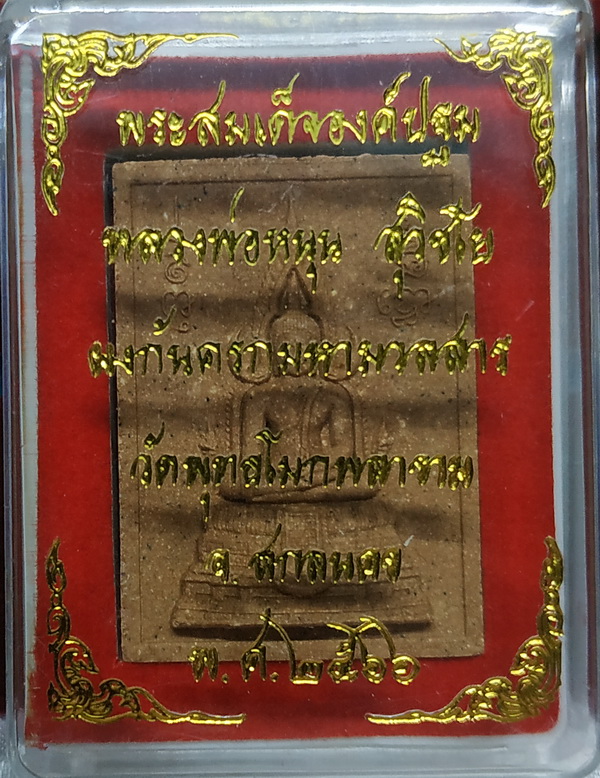 พระสมเด็จองค์ปฐม
หลวงพ่อหนุน สุวิชโย
ผงก้นครกมหามวลสาร
วัดพุทธโมกพลาราม
จ. สกลนคร
พ.ศ.๒๕๖๖